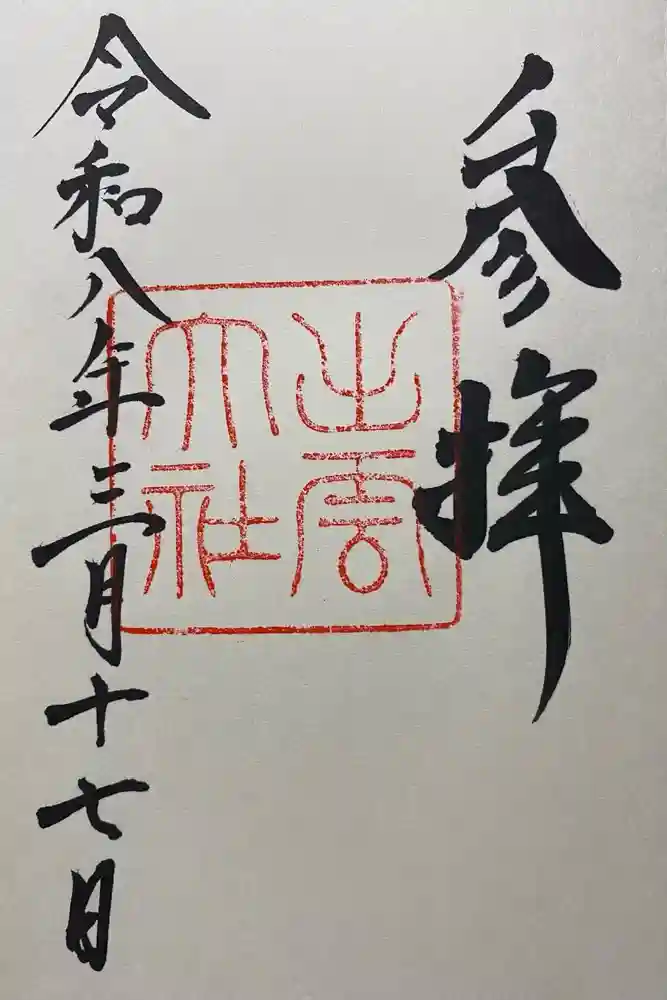 参拝
出雲
大社
令和八年三月十七日